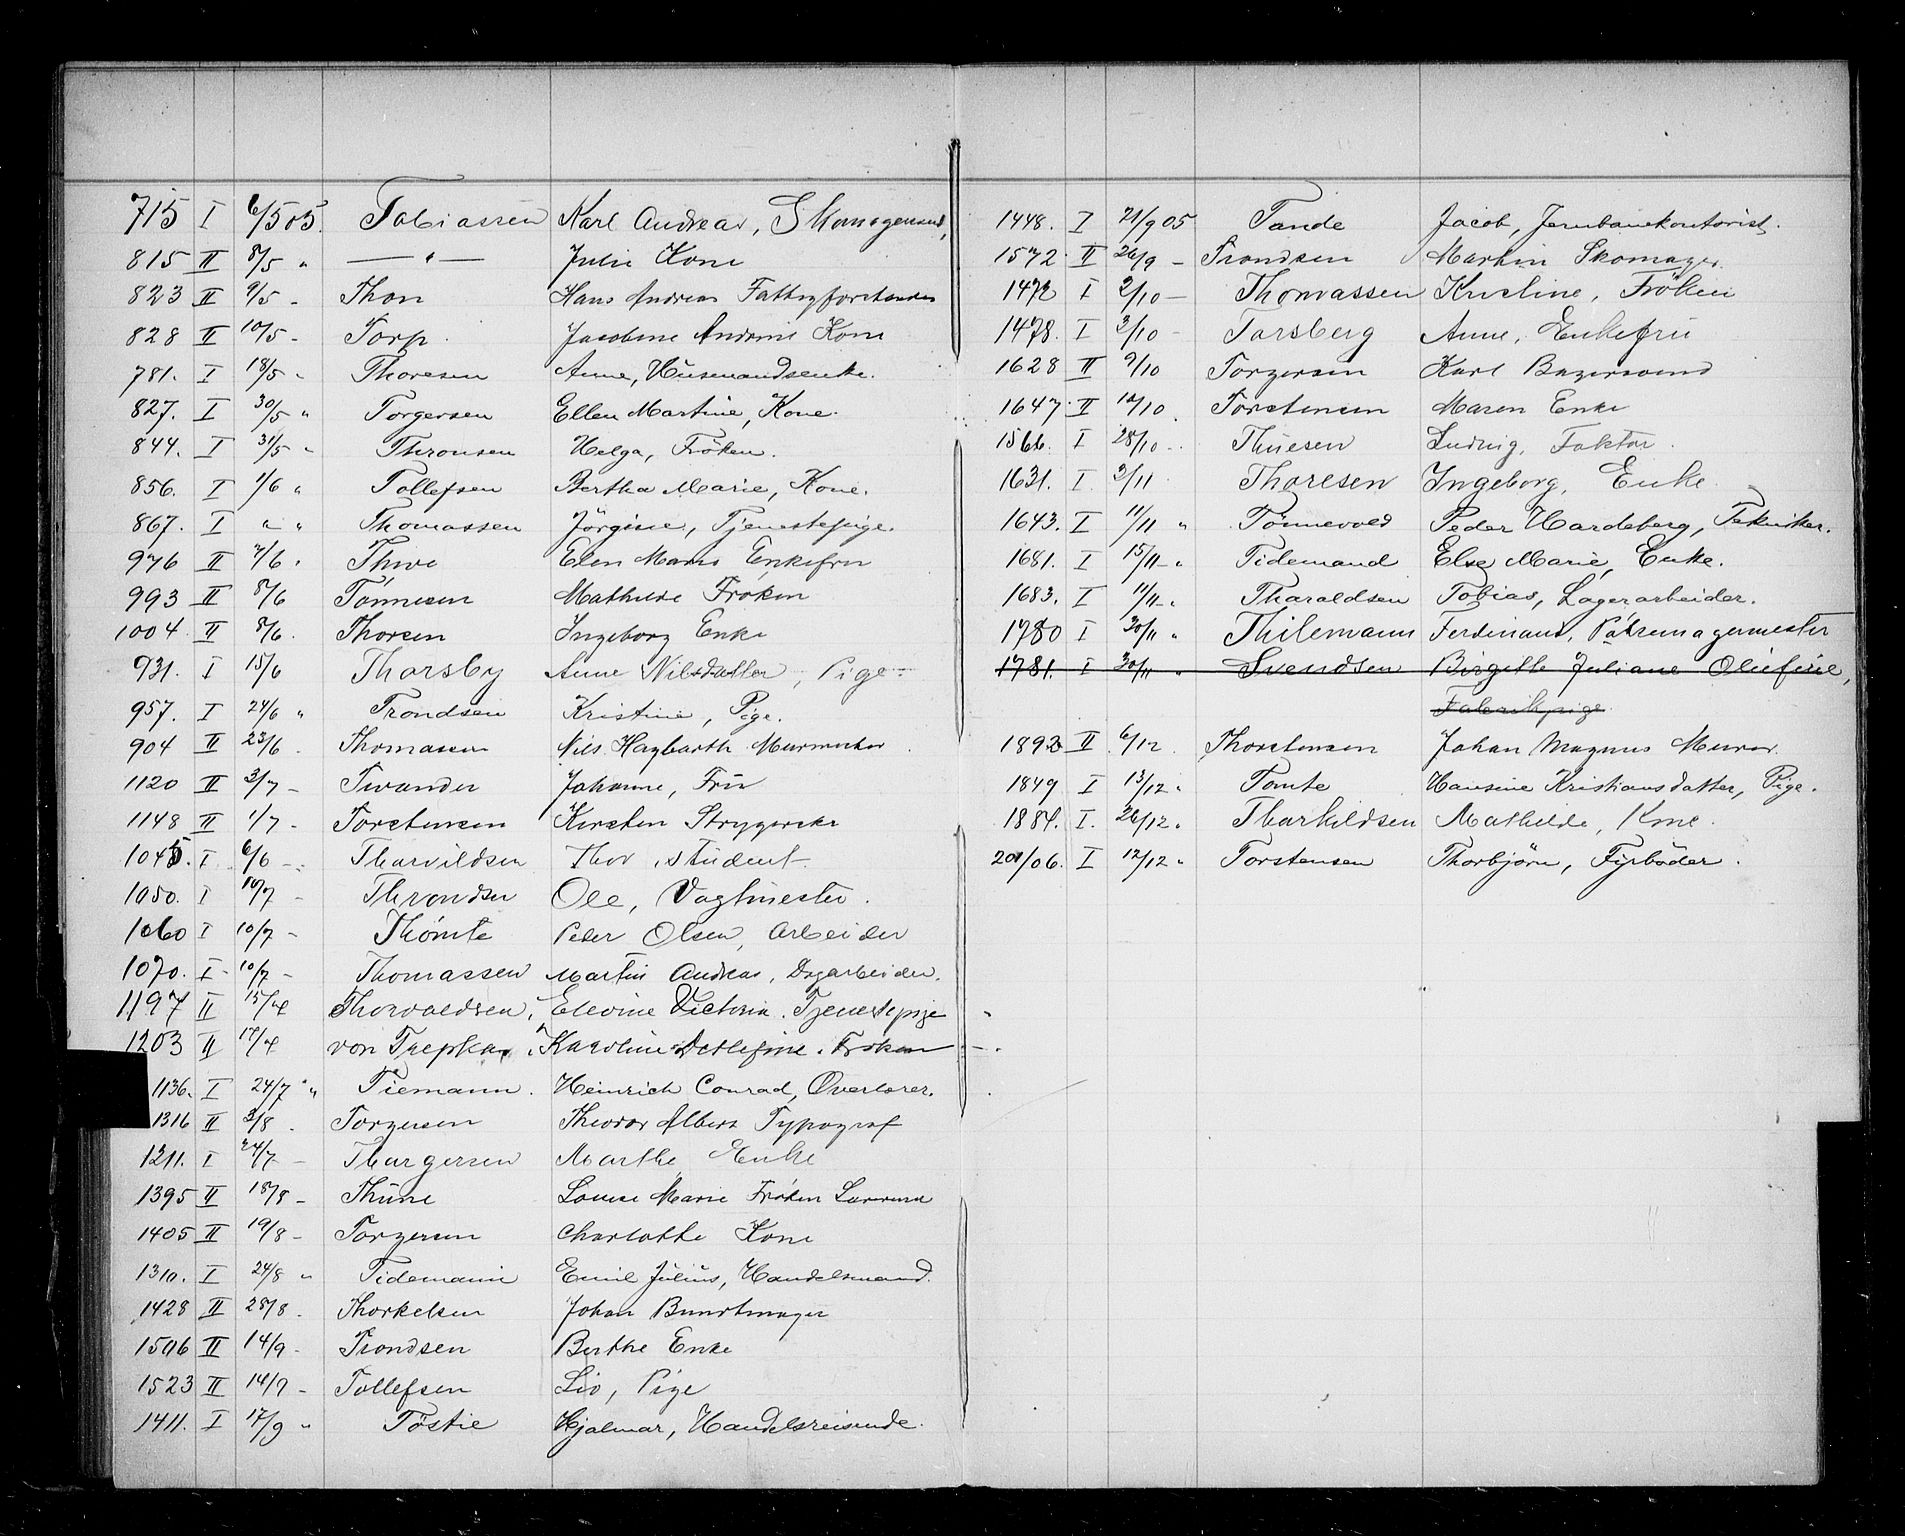 715 I 6/5 05. Tobiassen Karl Andreas, Skomagersvend,
815 II 8/5 " — " — Julie Kone
823 II 9/5 - Thon Hans Andreas Fattigforstander
828 II 10/5 - Torp. Jacobine Andrine Kone
781. I 18/5 " Thoresen Anne, Husmandsenke.
827. I 30/5 " Torgersen Ellen Martine, Kone.
844. I 31/5 " Thronsen Helga, Fröken.
856. I 1/6 " Tollefsen Bertha Marie, Kone.
867. I " " Thomassen Jörgine, Tjenestepige.
976 II 7/6 " Thwe Elen Marie Enkefru
993 II 8/6 Tönnesen Mathilde Frøken
1004 II 8/6. Thorsen Ingeborg Enke
931. I 15/6 Thorsby Anne Nilsdatter, Pige.
957. I 24/6 " Trondsen Kristine, Pige.
904 II 23/6 - Thomassen Nils Hagbarth Murmester
1120 II 3/7 - Twander Johanne, Fru
1148 II 1/7 - Torstensen Kirsten Strygerske
1045. I 6/6 - Tharvildsen Thor, student
1050. I 10/7 - Throndsen Ole, Vagtmester.
1060 I 10/7 - Thömte Peder Olsen, Arbeider
1070. I 10/7 - Thomassen Martin Andreas, Dagarbeider.
1197 II 15/7 Thorvaldsen, Elevine Victoria. Tjenestepige
1203 II 17/7 von Trepka, Karoline Detlefine. Frøken
1136. I 24/7 " Tiemann. Heinrich Conrad, Overlærer.
1316 II 3/8. Torgersen Theodor Albert Typograf
1211. I 24/7 - Thorgersen Marthe Enke
1395 II 18/8 - Thune Louise Marie Frøken
1405 II 19/8 - Torgersen Charlotte Kone
1310. I 24/8 " Tidemann Emil Julius, Handelsmand.
1428 II 28/8. Thorkelsen Johan Buntmager
1506 II 14/9 - Trondsen Berthe Enke
1523 II 14/9 - Tollefsen Liv, Pige
1411. I 17/9 " Töstie Hjalmar, Handelsreisende.
1448. I 21/9 05 Tande Jacob, Jernbanekontorist.
1572 II 26/9 - Trondsen Martin Skomager.
1472 I 2/10 - Thomassen Kristine, Fröken
1478. I 3/10 - Torsberg Anne, Enkefru
1628 II 9/10 Torgersen Karl Bagersvend
1647 II 12/10. Torstensen Maren Enke
1566. I 28/10 - Thuesen Ludvig, Faktor.
1631. I 3/11 Thoresen Ingeborg, Enke.
1643. I 11/11 " Tönnevold Peder Hardeberg, Tekniker.
1681. I 15/11 " Tidemand Else Marie, Enke.
1683. I 11/11 " Tharaldsen Tobias, Lagerarbeider.
1780 I 30/11 " Thilemann Ferdinand, Pølsemagermester
1781. I 30/11 " Svendsen Birgitte Juliane Oliefine,
Fabrikpige.
1893 II 6/12. Thorstensen Johan Magnus Murer.
1849 I 13/12 " Tomte Hansine Kristiansdatter, Pige.
1884. I. 26/12 " Tharkildsen Mathilde, Kone.
201/06. I 12/12 " Torstensen Thorbjörn, Fyrböder.